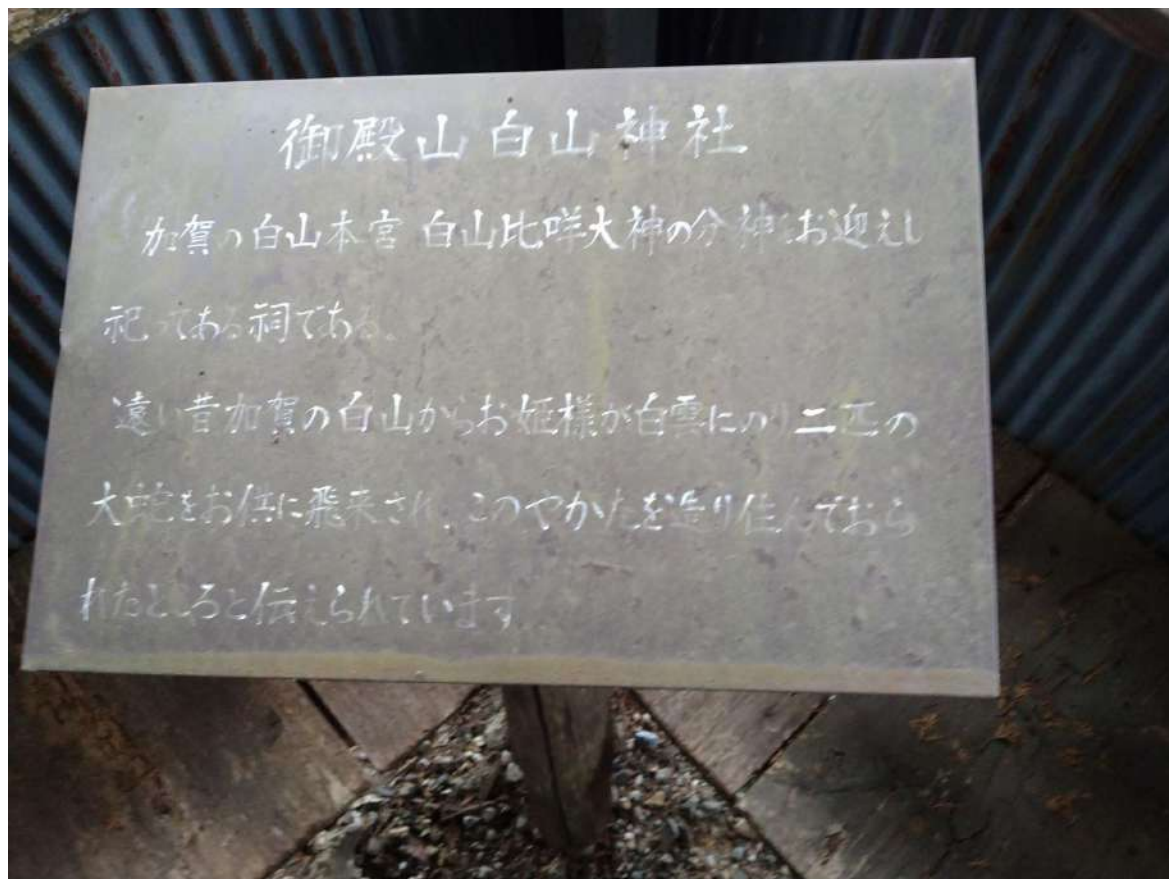 御殿山白山神社
加賀の白山本宮 白山比咩大神の分神をお迎えし
祀ってある祠である。
遠い昔加賀の白山からお姫様が白雲にのり二匹の
大蛇をお供に飛来され、このやかたを造り住んでおら
れたところと伝えられています